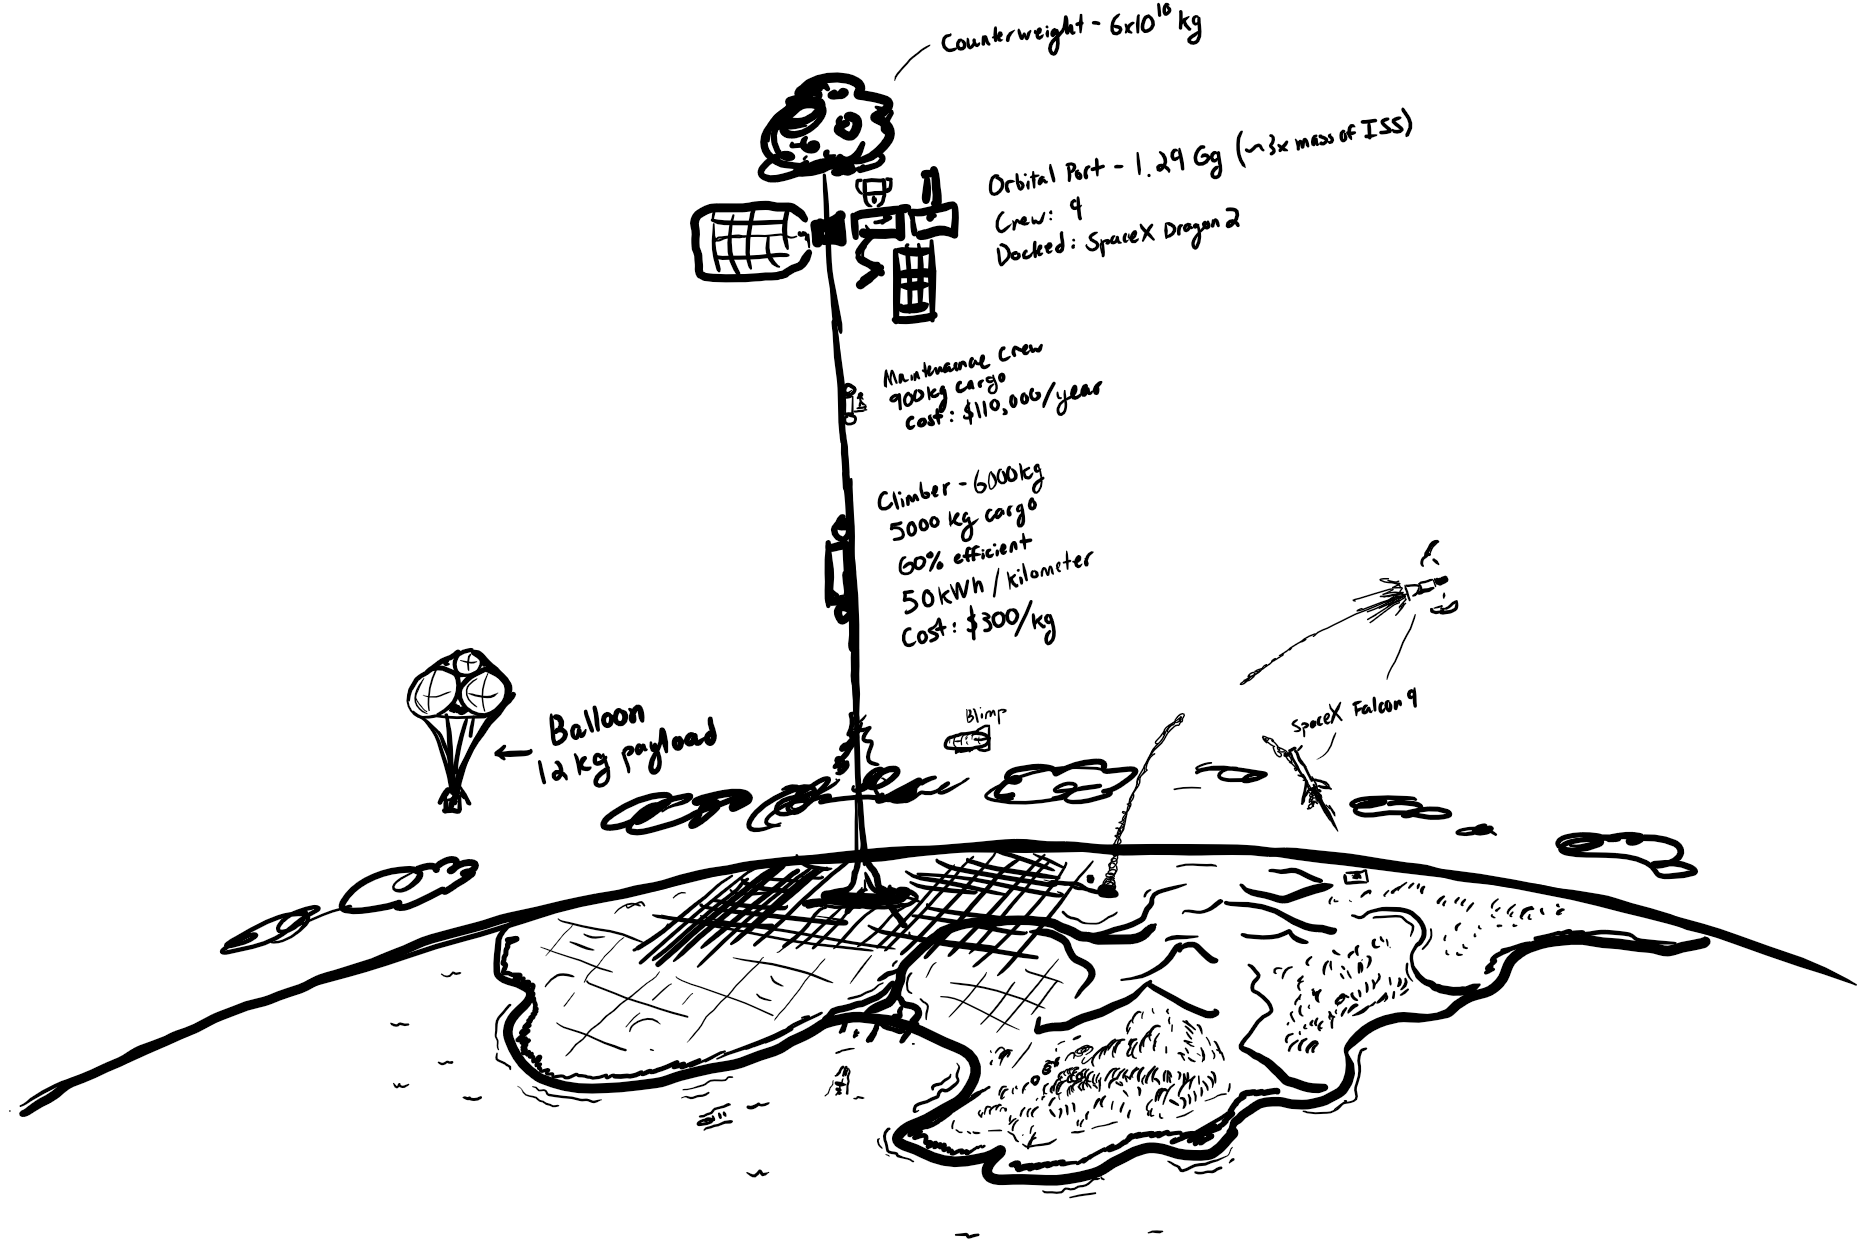 Counterweight - 6x10¹⁰ kg
Orbital Port - 1.29 Gg (~3x mass of ISS)
Crew: 9
Docked: SpaceX Dragon 2
Maintenance Crew
900kg cargo
Cost: $110,000/year
Climber - 6000kg
5000 kg cargo
60% efficient
50kWh/kilometer
Cost: $300/kg
Balloon
12kg payload
Blimp
SpaceX Falcon 9